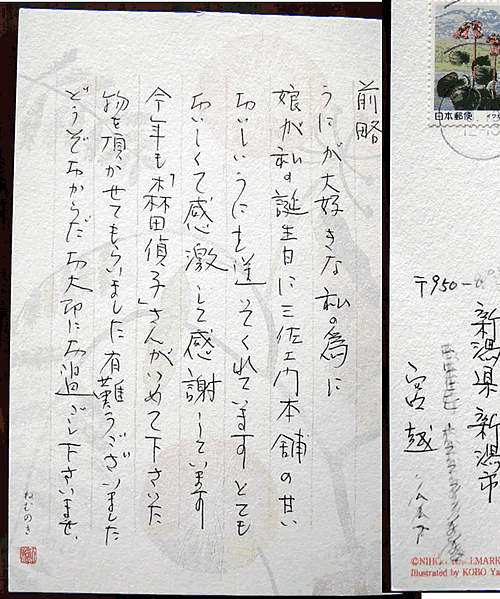 前略
うにが大好きな私の為に
娘が私の誕生日に三佐ヱ門本舗の甘い
おいしいうにを送ってくれていますとても
おいしくて感激して感謝しています
今年も「森田偵子」さんがいめて下さいた
物を頂かせてもらいました有難うございました
どうぞおからだお大切にお過ごし下さいませ、
ねむのき
日本郵便
〒950-8
新潟県新潟市
宮越
©NIHON HALLMARK
Illustrated by KOBO Ya